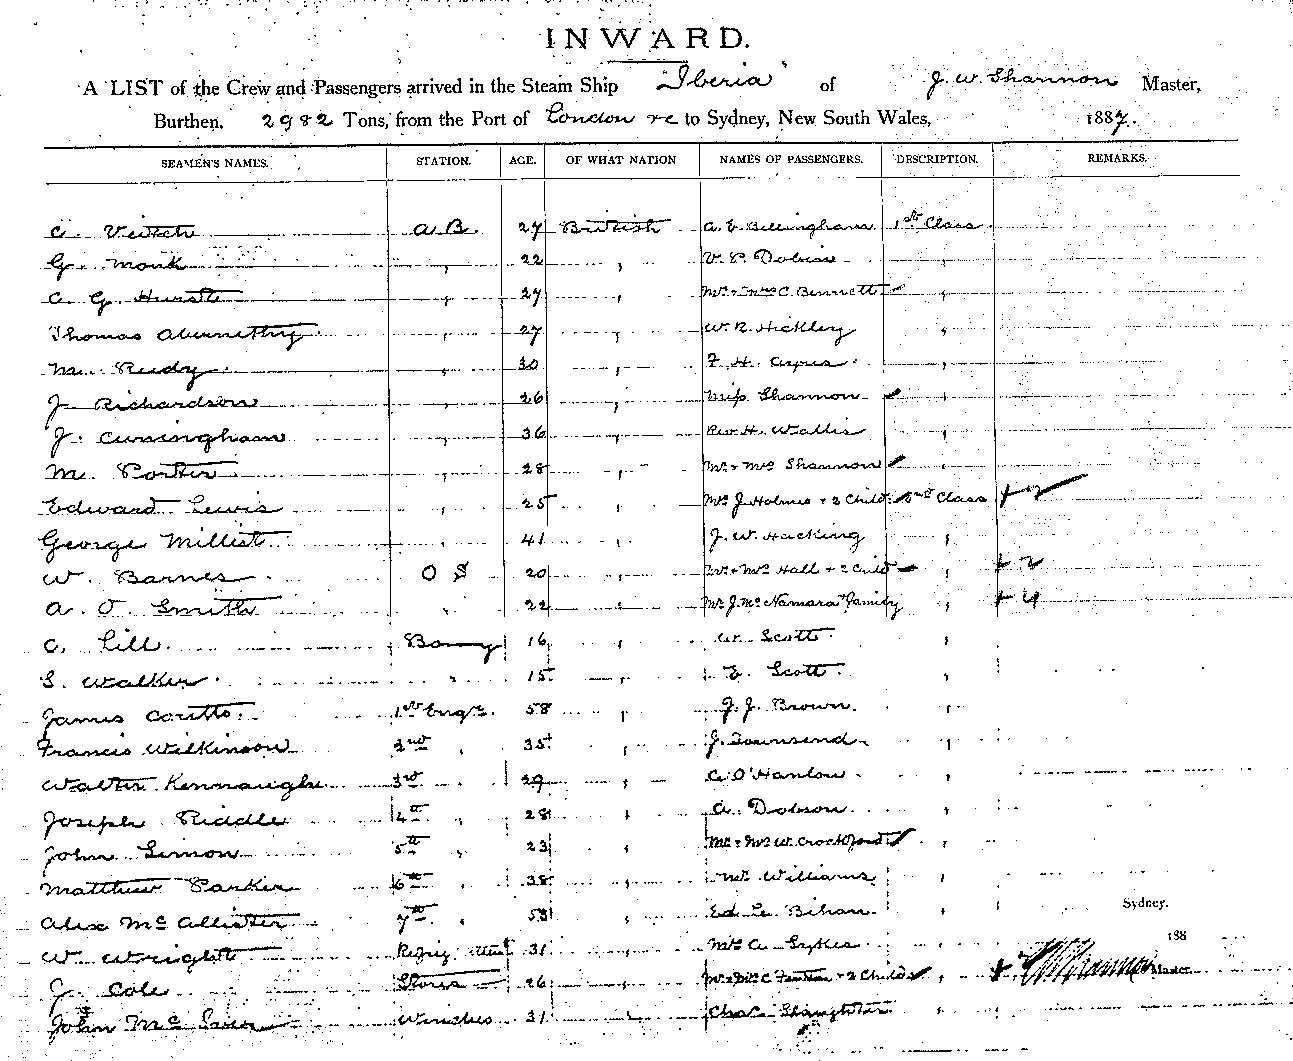 INWARD.
A LIST of the Crew and Passengers arrived in the Steam Ship "Iberia" of J. W. Shannon Master,
Burthen, 2982 Tons, from the Port of London &c to Sydney, New South Wales, 1887.
SEAMEN'S NAMES. STATION. AGE. OF WHAT NATION NAMES OF PASSENGERS. DESCRIPTION. REMARKS.
C. Veitch A.B. 27 British A. E. Billingham 1st Class
G. Monk " 22 " V. P. Dobin "
C. G. Hurst " 27 " Mr & Mrs C. Bennett "
Thomas Abernethy " 27 " W. R. Hickley "
M. Reidy " 30 " F. H. Ayres "
J. Richardson " 26 " Miss Shannon "
J. Cunningham " 36 " Rev. H. Wallis "
M. Porter " 28 " Mr & Mrs Shannon "
Edward Lewis " 25 " Mrs J. Holmes & 2 Child. 2nd Class + 2
George Millist " 41 " J. W. Hacking "
W. Barnes O S 20 " Mr & Mrs Hall & 2 Child " + 2
A. O. Smith " 22 " Mr J. McNamara & Family " + 4
C. Lill Boy 16 " W. Scott "
S. Walker " 15 " E. Scott "
James Coutts 1st Engr. 58 " J. J. Brown "
Francis Wilkinson 2nd " 35 " J. Townsend "
Walter Kennaugh 3rd " 29 " C. O'Hanlon "
Joseph Riddle 4th " 28 " A. Dobson "
John Simon 5th " 23 " Mr & Mrs W. Crockford "
Matthew Parker 6th " 38 " Mr Williams "
Alex McAllister 7th " 53 " Ed. Le Bihan " Sydney.
W. Wright Refrig. 31 " Mrs A. Sykes " 188
J. Cole Stores 26 " Mr & Mrs C. & 2 Childn " + J W Shannon Master
John Mc Winches 31 " Chas Slaughter